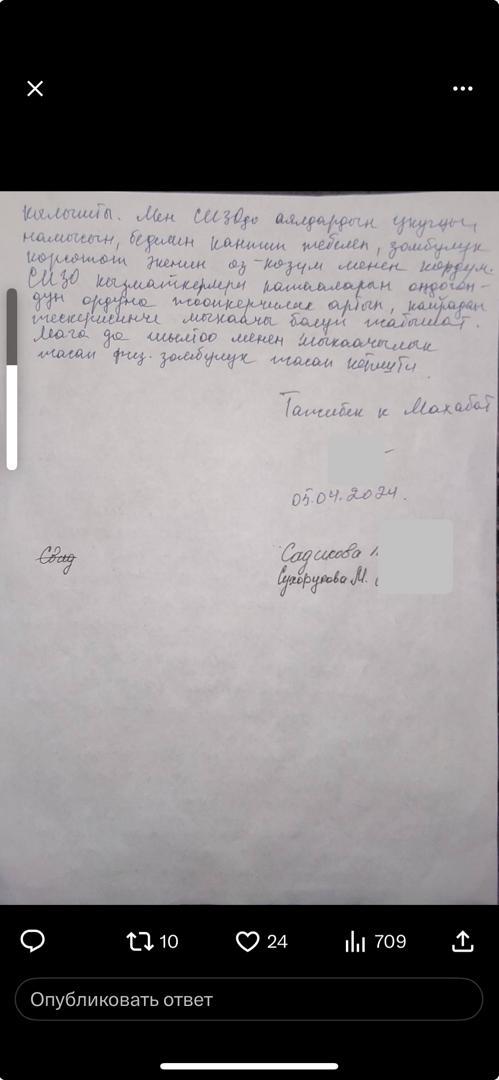 келишти. Мен СИЗОдо аялдардын укугун,
намысын, беделин кантип тебелеп, зомбулук
көрсөтөт экенин өз-көзүм менен көрдүм.
СИЗО кызматкерлери каталарын оңдогон-
дун ордуна жоопкерчилик артып, кайрадан
тескерисинче мыкаачы болуп жатышат.
Мага да мыкаачылык
жасап физ. зомбулук жасап кетишти.
Тажибек к Махабат
05.04.2024.
Садикова
Сухорукова М.
10
24
709
Опубликовать ответ